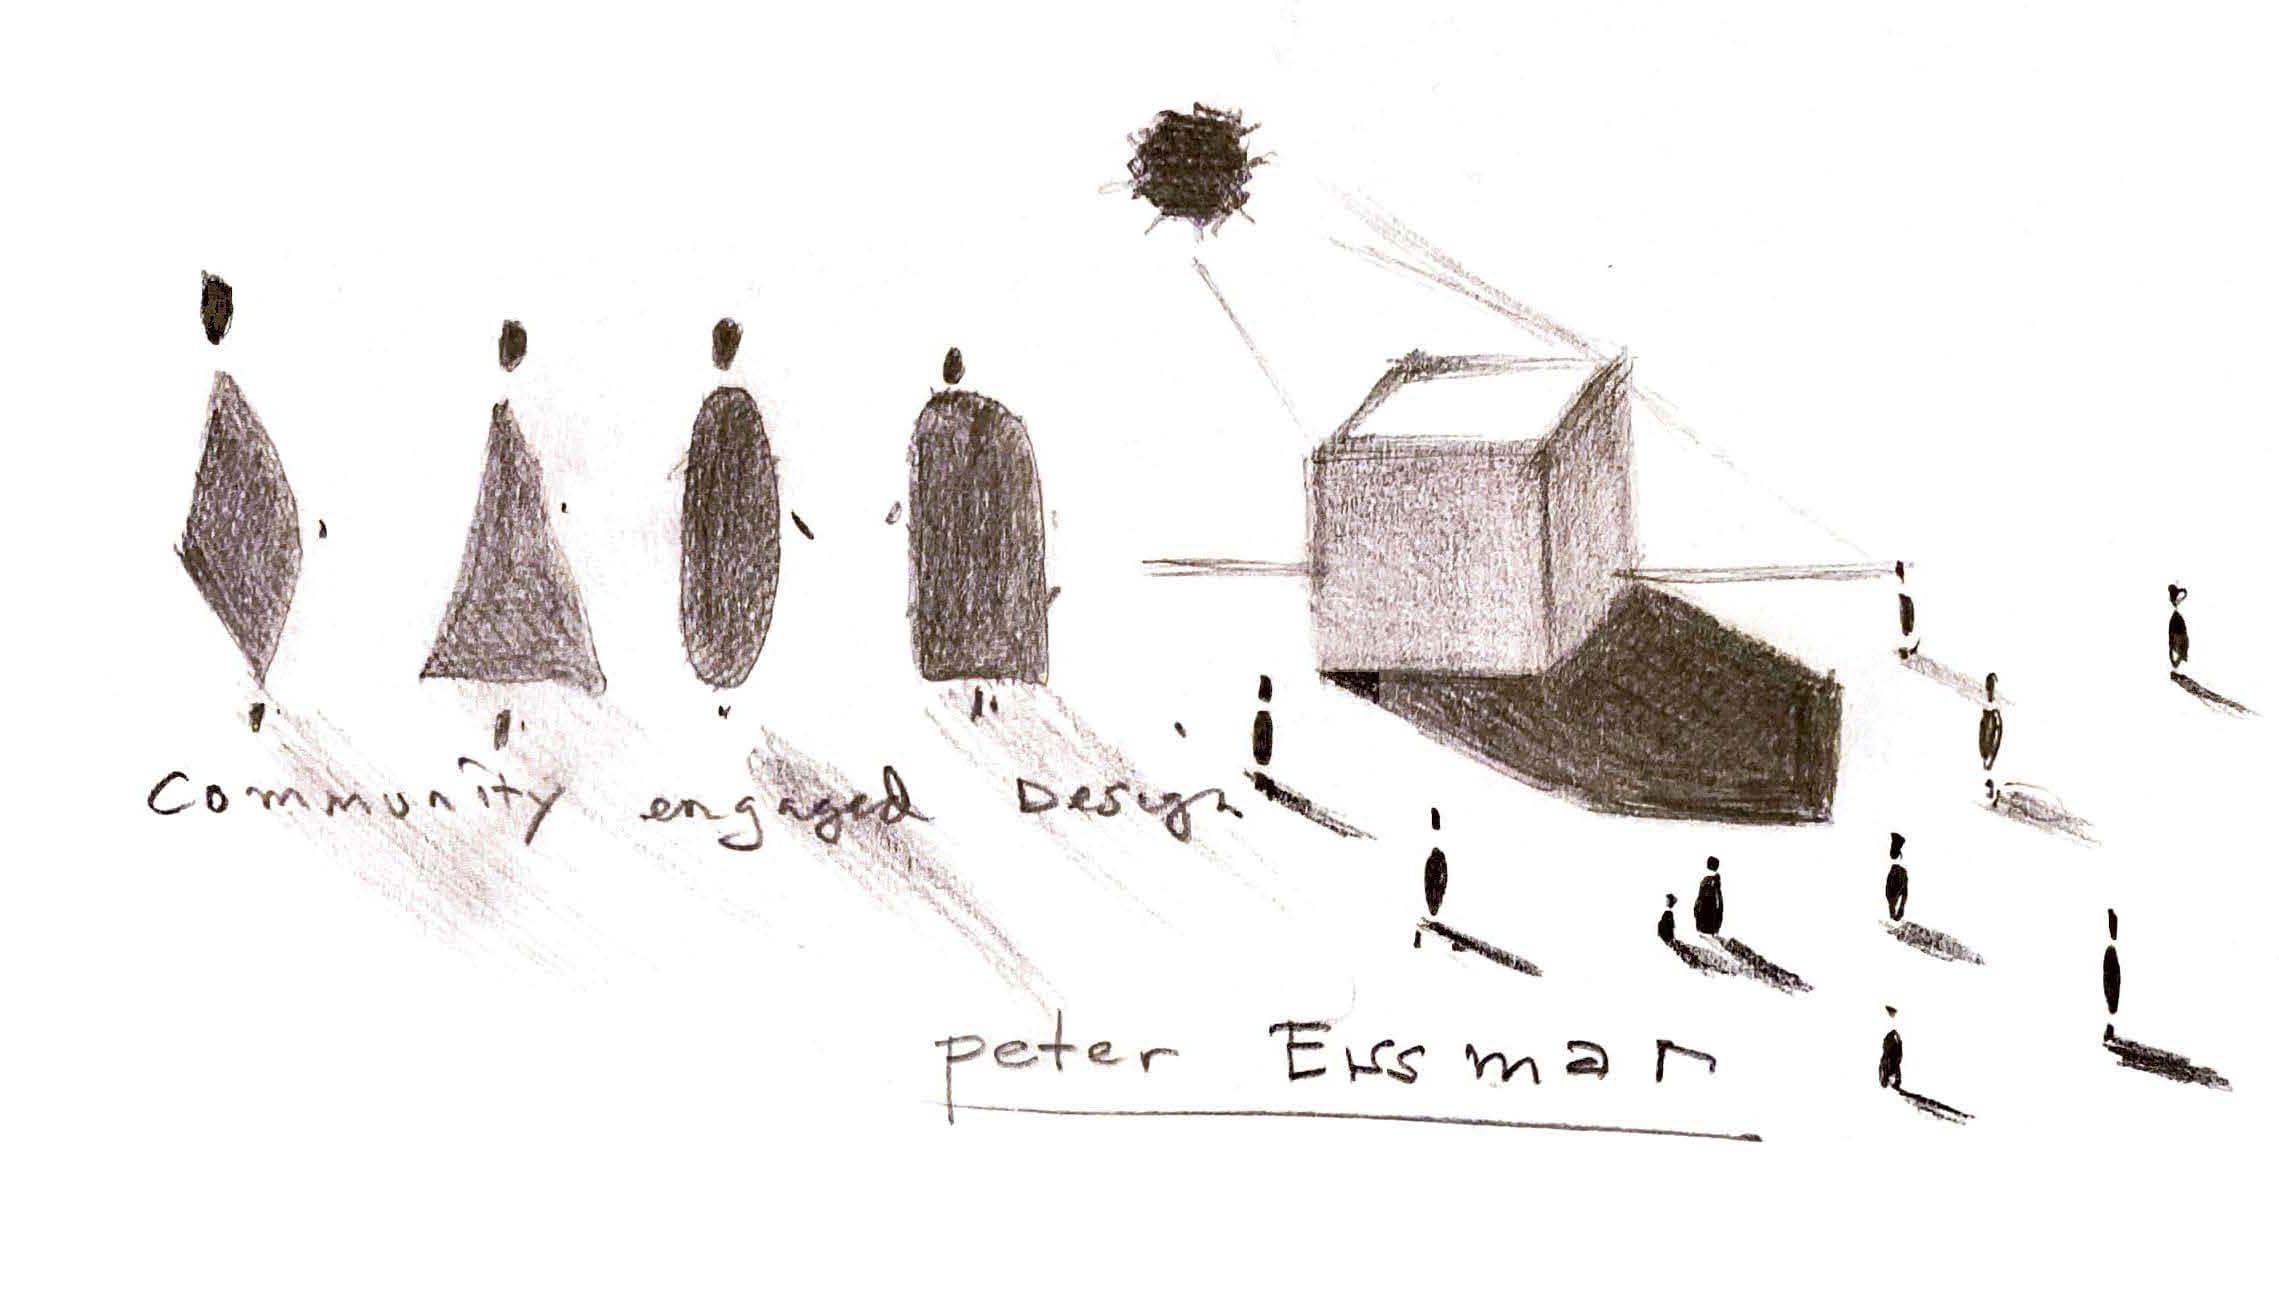 Community engaged Design
peter Eissman